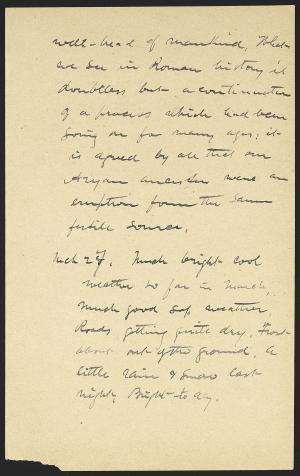 well-head of mankind, What
we see in Roman history is
doubtless but a continuation
of a process which had been
going on for many ages; it
is agreed by all that our
Aryan ancestors were an
eruption from the same
fertile source.
Mch 27. Much bright cool
weather so far in March,
Much good sap weather.
Roads getting quite dry, Frost
about out of the ground. A
little rain & snow last
night, Bright to-day.